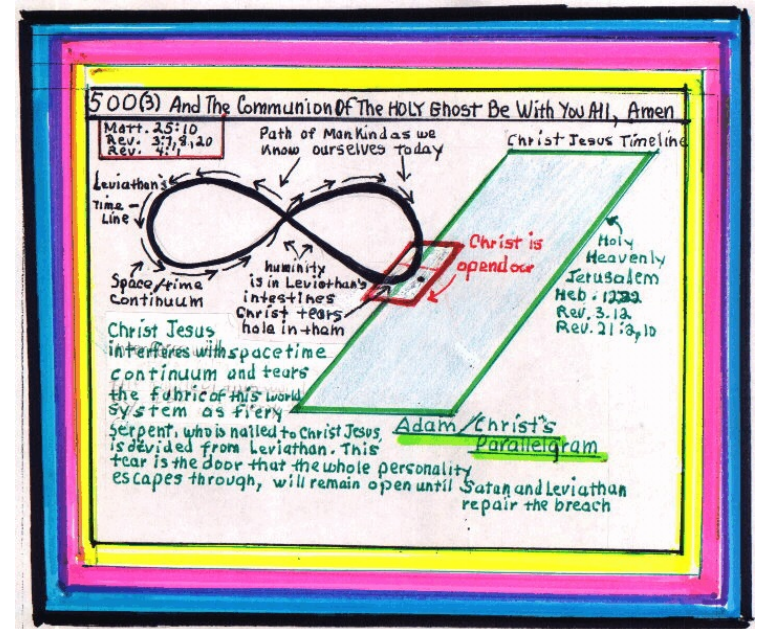 500(3) And The Communion Of The HOLY Ghost Be With You All, Amen
Matt. 25:10
Rev. 3:7,8,20
Rev. 4:1
Path of Mankind as we
know ourselves today
Christ Jesus Timeline
Leviathan's
Time -
Line
Space/time
Continuum
huminity
is in Leviathan's
intestines
Christ tears
hole in tham
Christ is
opendoor
Holy
Heavenly
Jerusalem
Heb. 12:22
Rev. 3.12
Rev. 21:2,10
Christ Jesus
interferes with spacetime
continuum and tears
the fabric of this world
system as fiery
serpent, who is nailed to Christ Jesus,
is devided from Leviathan. This
tear is the door that the whole personality
escapes through, will remain open until Satan and Leviathan
repair the breach
Adam/Christ's
Parallelgram